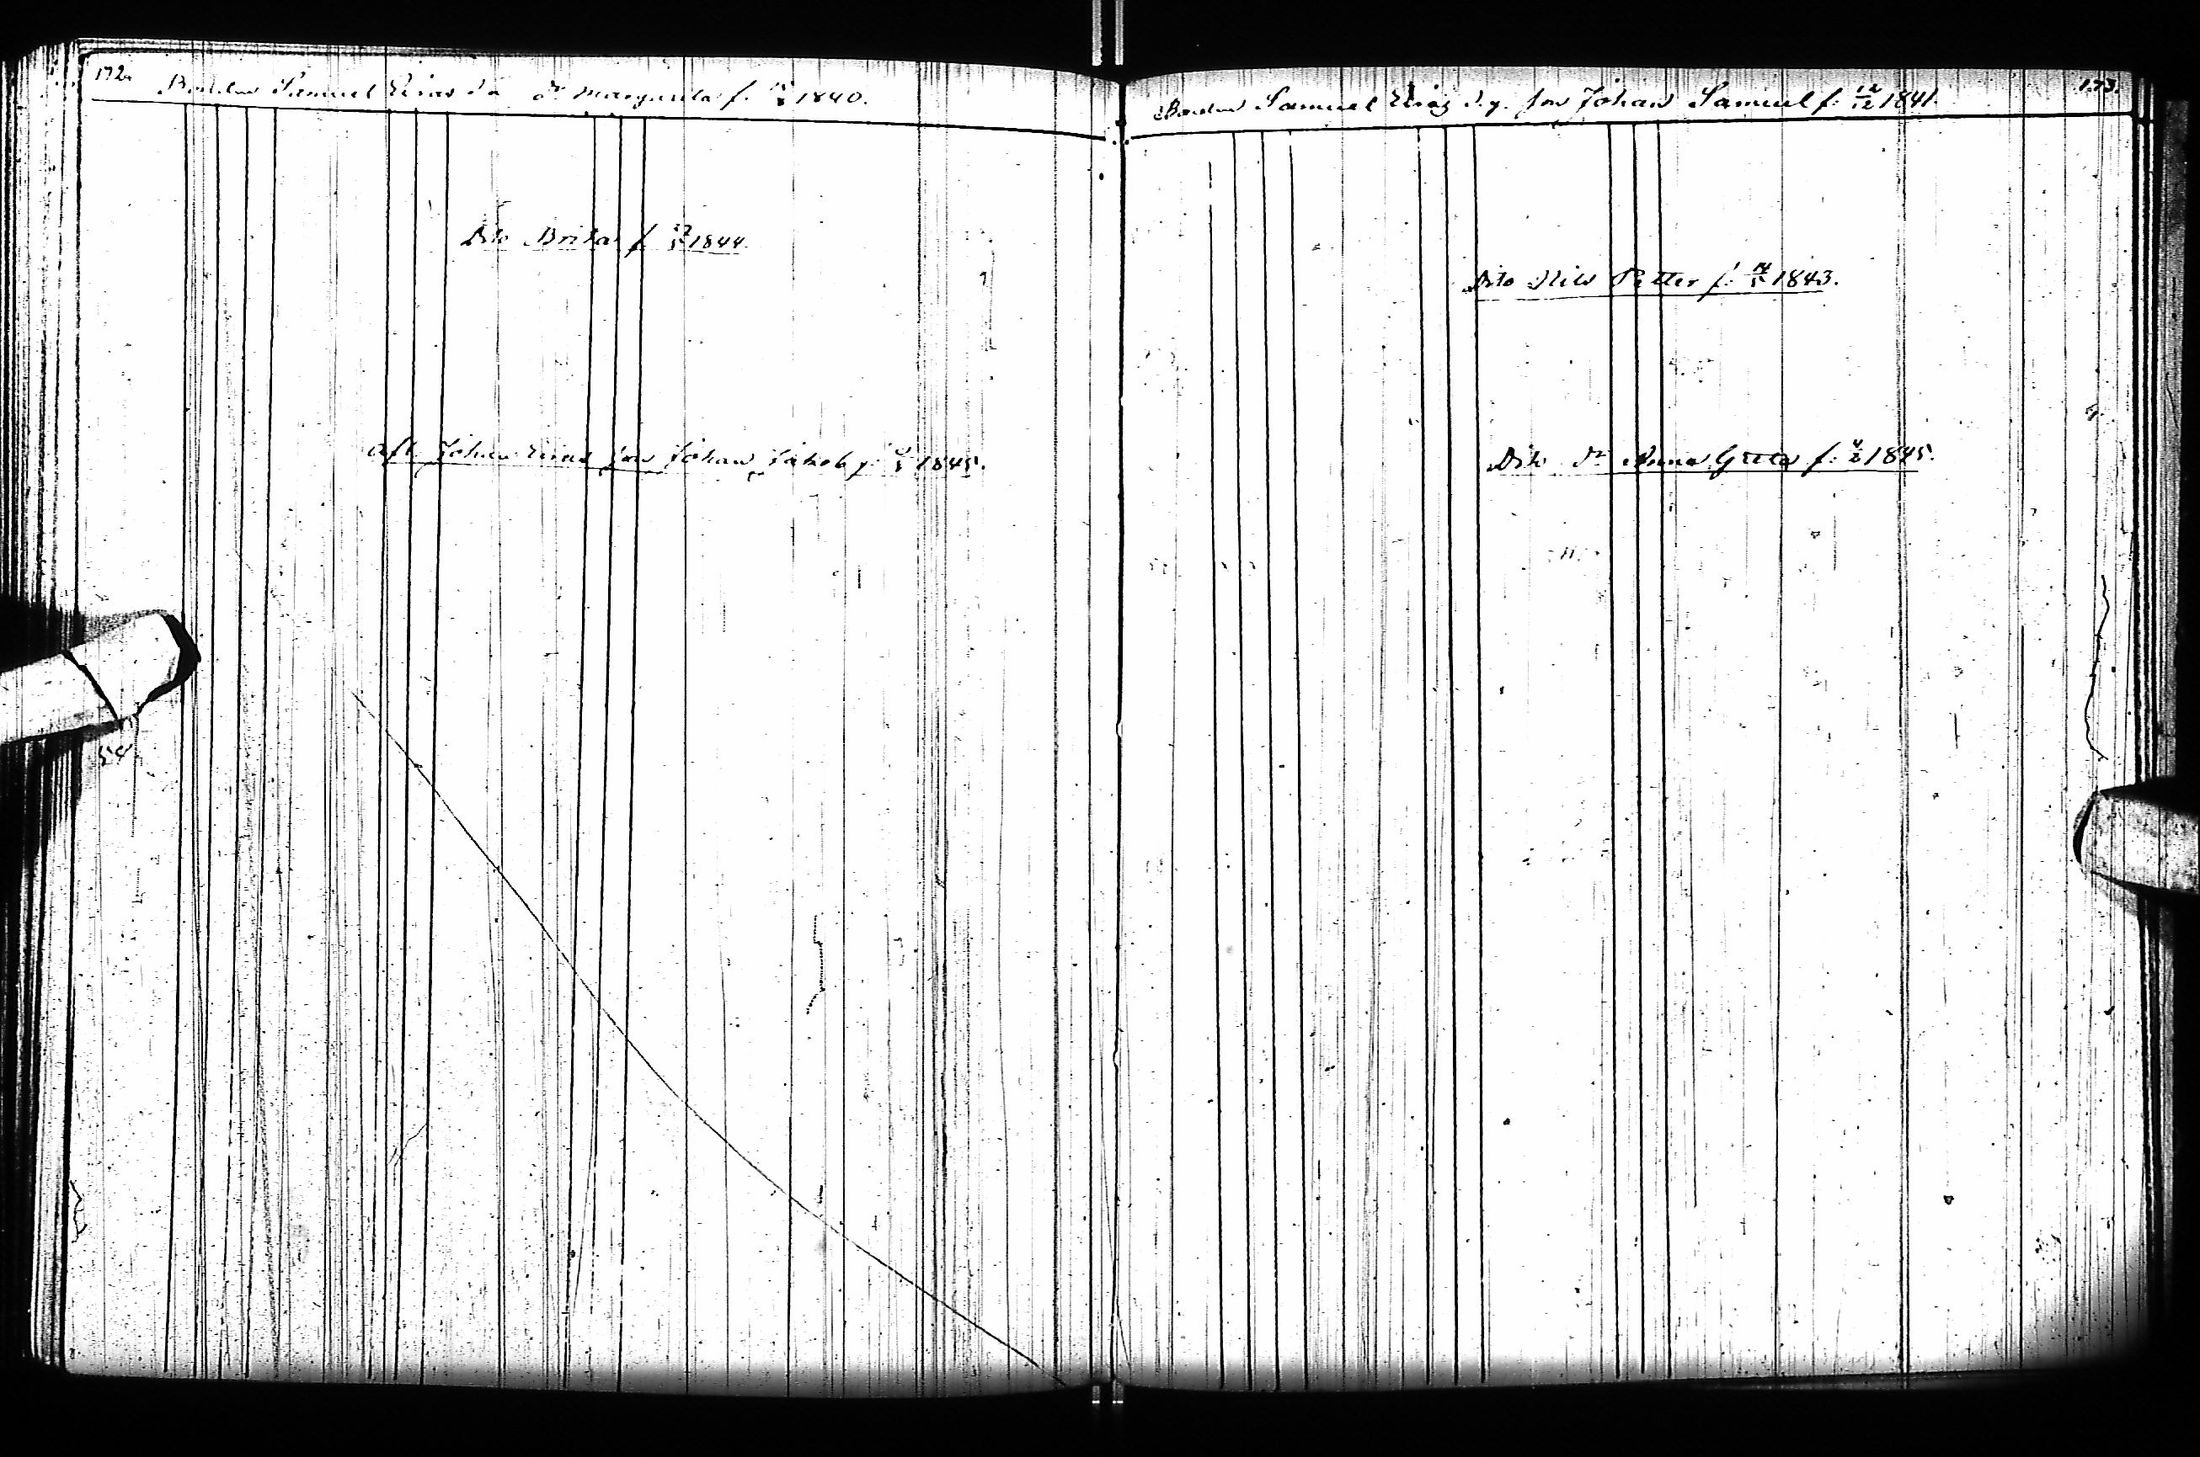 172.
Bondens Samuel Elias dr Margareta f. 1840.
Dito Brita f. 1844.
Afl. Johan Elias son Johan Jakob f. 1845.
54
173.
Bonden Samuel Elias d.y. son Johan Samuel f. 12/12 1841.
Dito Nils Petter f. 14/5 1843.
Dito dr Anna Greta f. 4/2 1845.